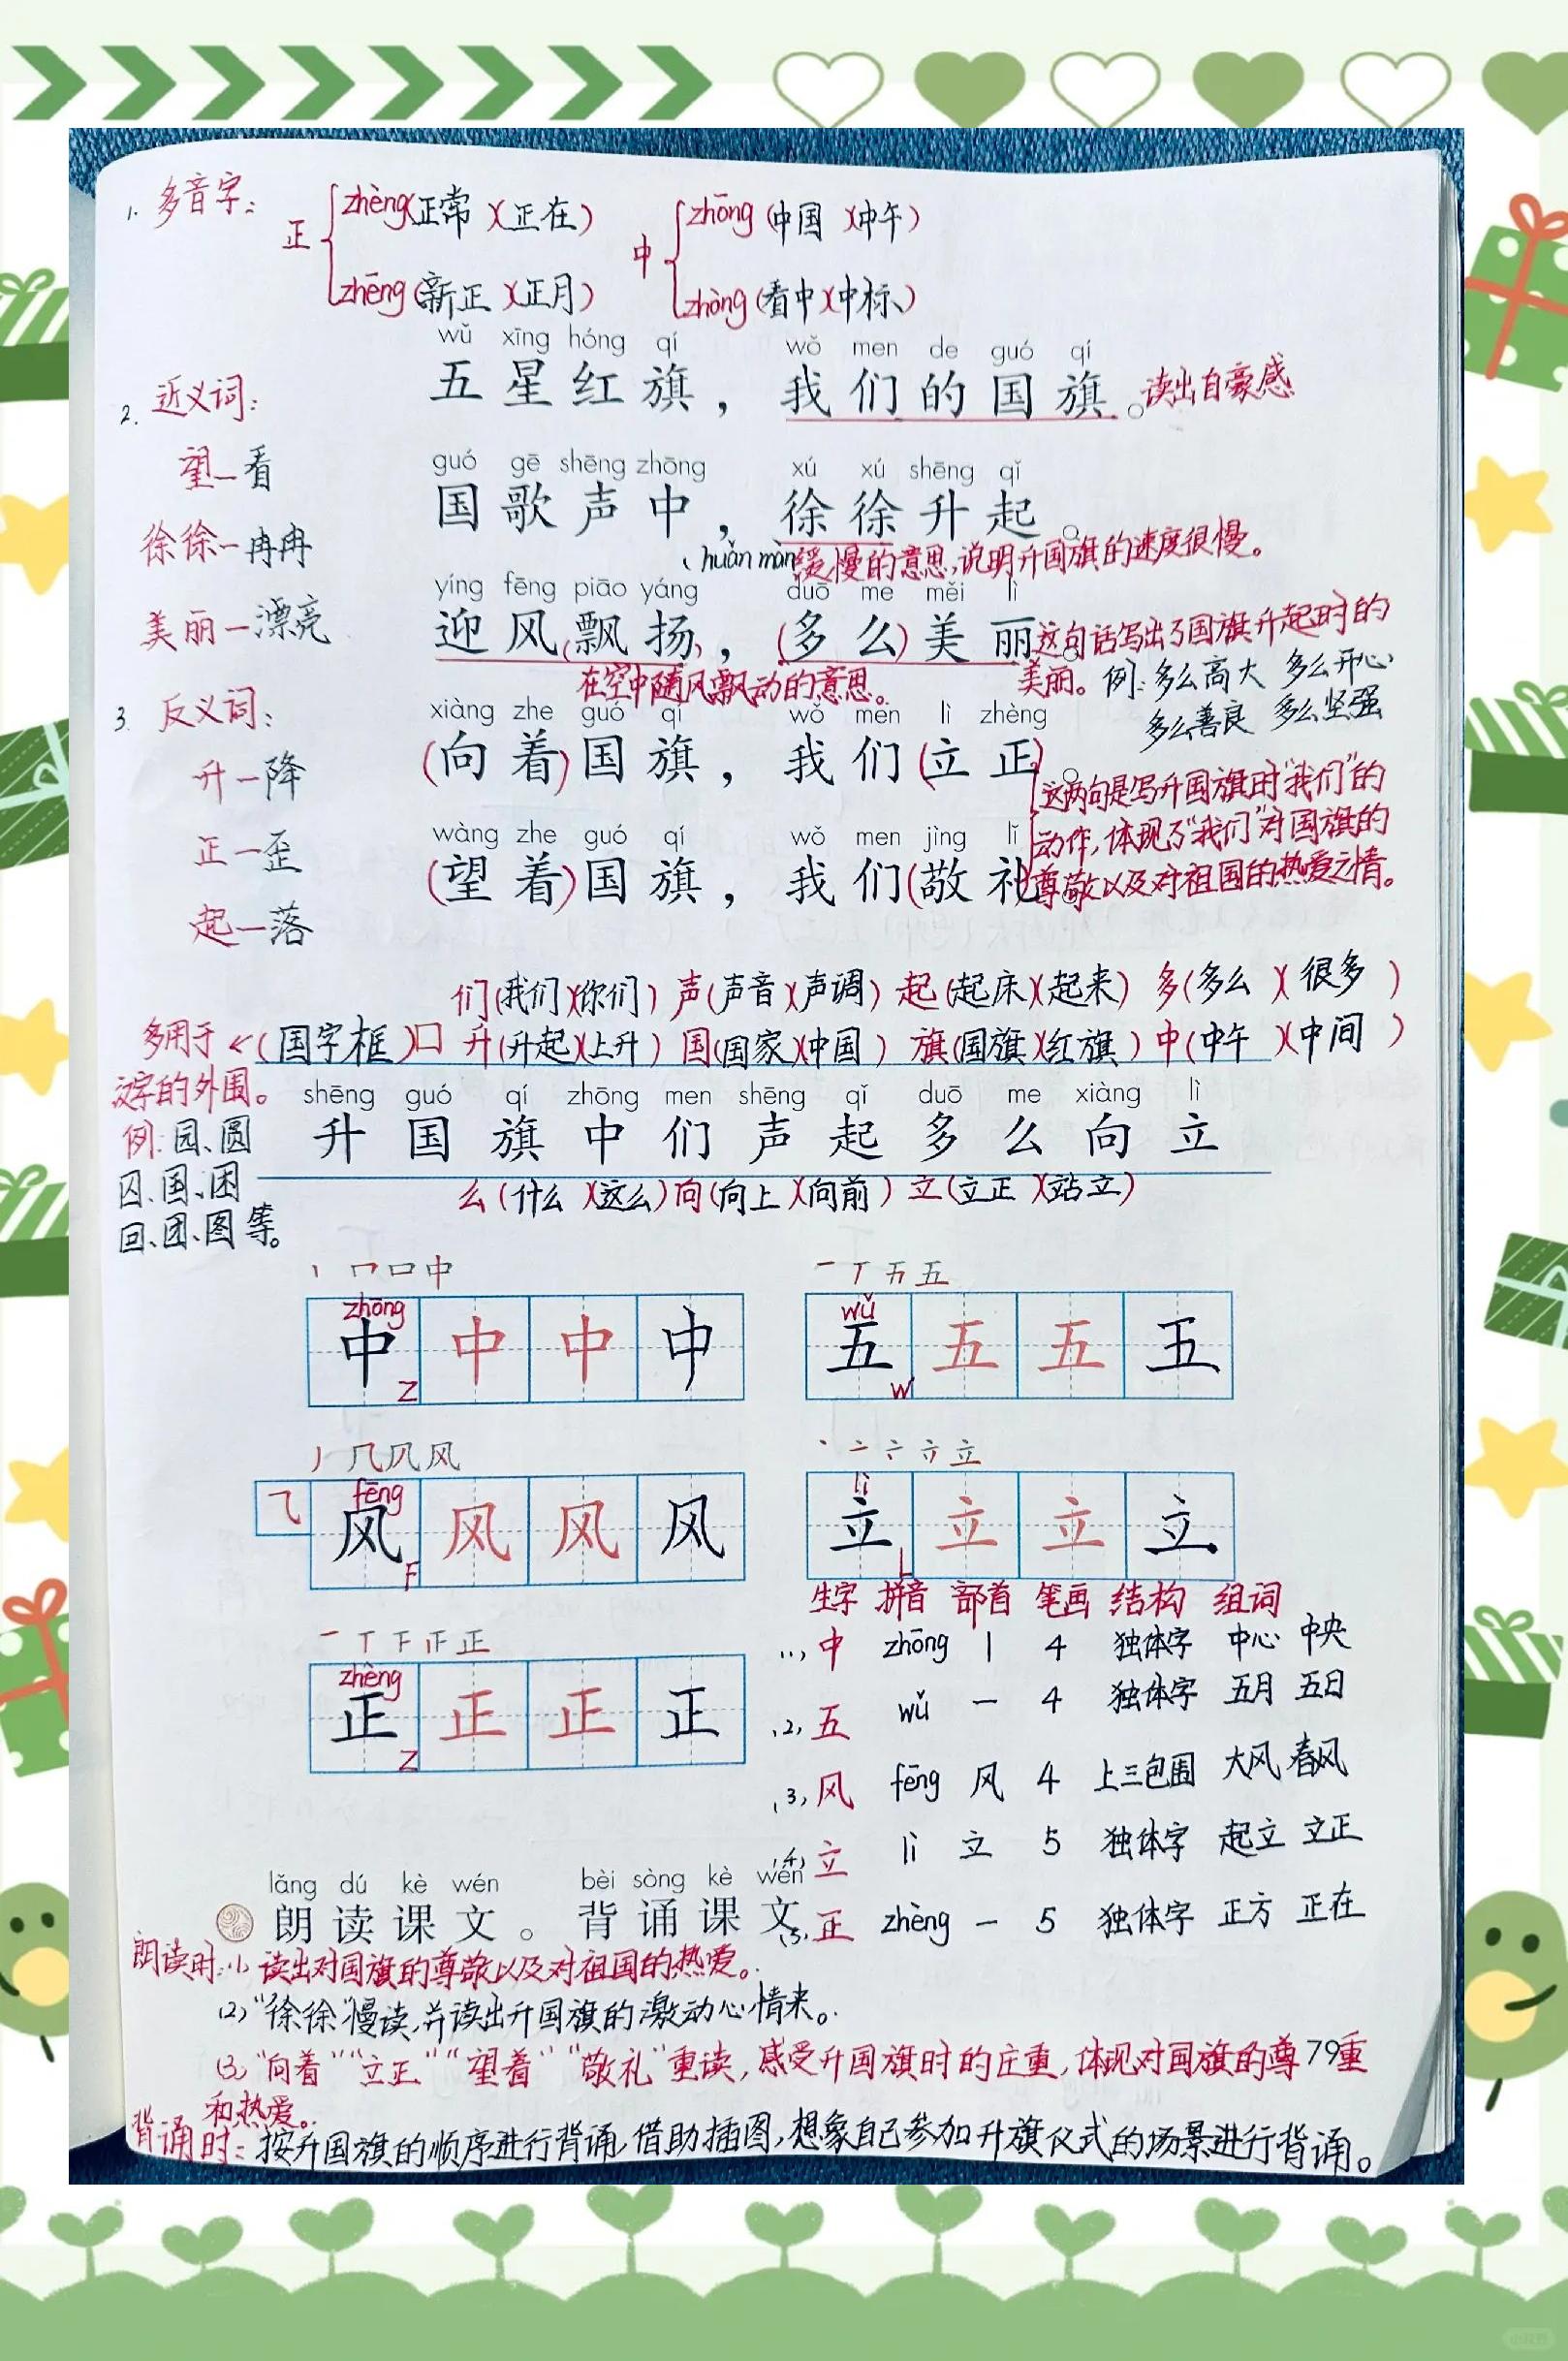 1. 多音字：
正 zhèng(正常)(正在)
zhēng(新正)(正月)
中 zhōng(中国)(中午)
zhòng(看中)(中标)
wǔ xīng hóng qí wǒ men de guó qí
五星红旗，我们的国旗。读出自豪感
2. 近义词：
望—看
徐徐—冉冉
美丽—漂亮
guó gē shēng zhōng xú xú shēng qǐ
国歌声中，徐徐升起。
huǎn màn 缓慢的意思，说明升国旗的速度很慢。
yíng fēng piāo yáng duō me měi lì
迎风(飘扬)，(多么)美丽。
在空中随风飘动的意思。
这句话写出了国旗升起时的
美丽。例：多么高大 多么开心
多么善良 多么坚强
3. 反义词：
升—降
正—歪
起—落
xiàng zhe guó qí wǒ men lì zhèng
(向着)国旗，我们(立正)。
wàng zhe guó qí wǒ men jìng lǐ
(望着)国旗，我们(敬礼)。
这两句是写升国旗时"我们"的
动作，体现了"我们"对国旗的
尊敬以及对祖国的热爱之情。
们(我们)(你们) 声(声音)(声调) 起(起床)(起来) 多(多么)(很多)
多用于←(国字框)囗 升(升起)(上升) 国(国家)(中国) 旗(国旗)(红旗) 中(中午)(中间)
汉字的外围。
例：园、圆
囚、国、困
回、团、图等。
shēng guó qí zhōng men shēng qǐ duō me xiàng lì
升国旗中们声起多么向立
么(什么)(这么) 向(向上)(向前) 立(立正)(站立)
丨 𠃍 口 中
zhōng
中 中 中 中
Z
一 丅 五
wǔ
五 五 五 五
W
丿 几 风
fēng
⺄ 风 风 风 风
F
丶 亠 立
lì
立 立 立 立
L
一 丅 下 正
zhèng
正 正 正 正
Z
生字 拼音 部首 笔画 结构 组词
(1) 中 zhōng 丨 4 独体字 中心 中央
(2) 五 wǔ 一 4 独体字 五月 五日
(3) 风 fēng 风 4 上三包围 大风 春风
(4) 立 lì 立 5 独体字 起立 立正
(5) 正 zhèng 一 5 独体字 正方 正在
lǎng dú kè wén bèi sòng kè wén
朗读课文。背诵课文。
朗读时：(1) 读出对国旗的尊敬以及对祖国的热爱。
(2)"徐徐"慢读，并读出升国旗的激动心情来。
(3)"向着""立正""望着""敬礼"重读，感受升国旗时的庄重，体现对国旗的尊重
和热爱。
79
背诵时：按升国旗的顺序进行背诵，借助插图，想象自己参加升旗仪式的场景进行背诵。